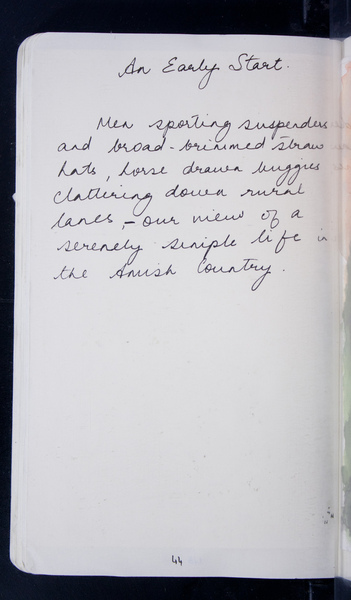 An Early Start.
Men sporting suspenders
and broad-brimmed straw
hats, horse drawn buggies
clattering down rural
lanes, – our view of a
serenely simple life in
the Amish Country.
44